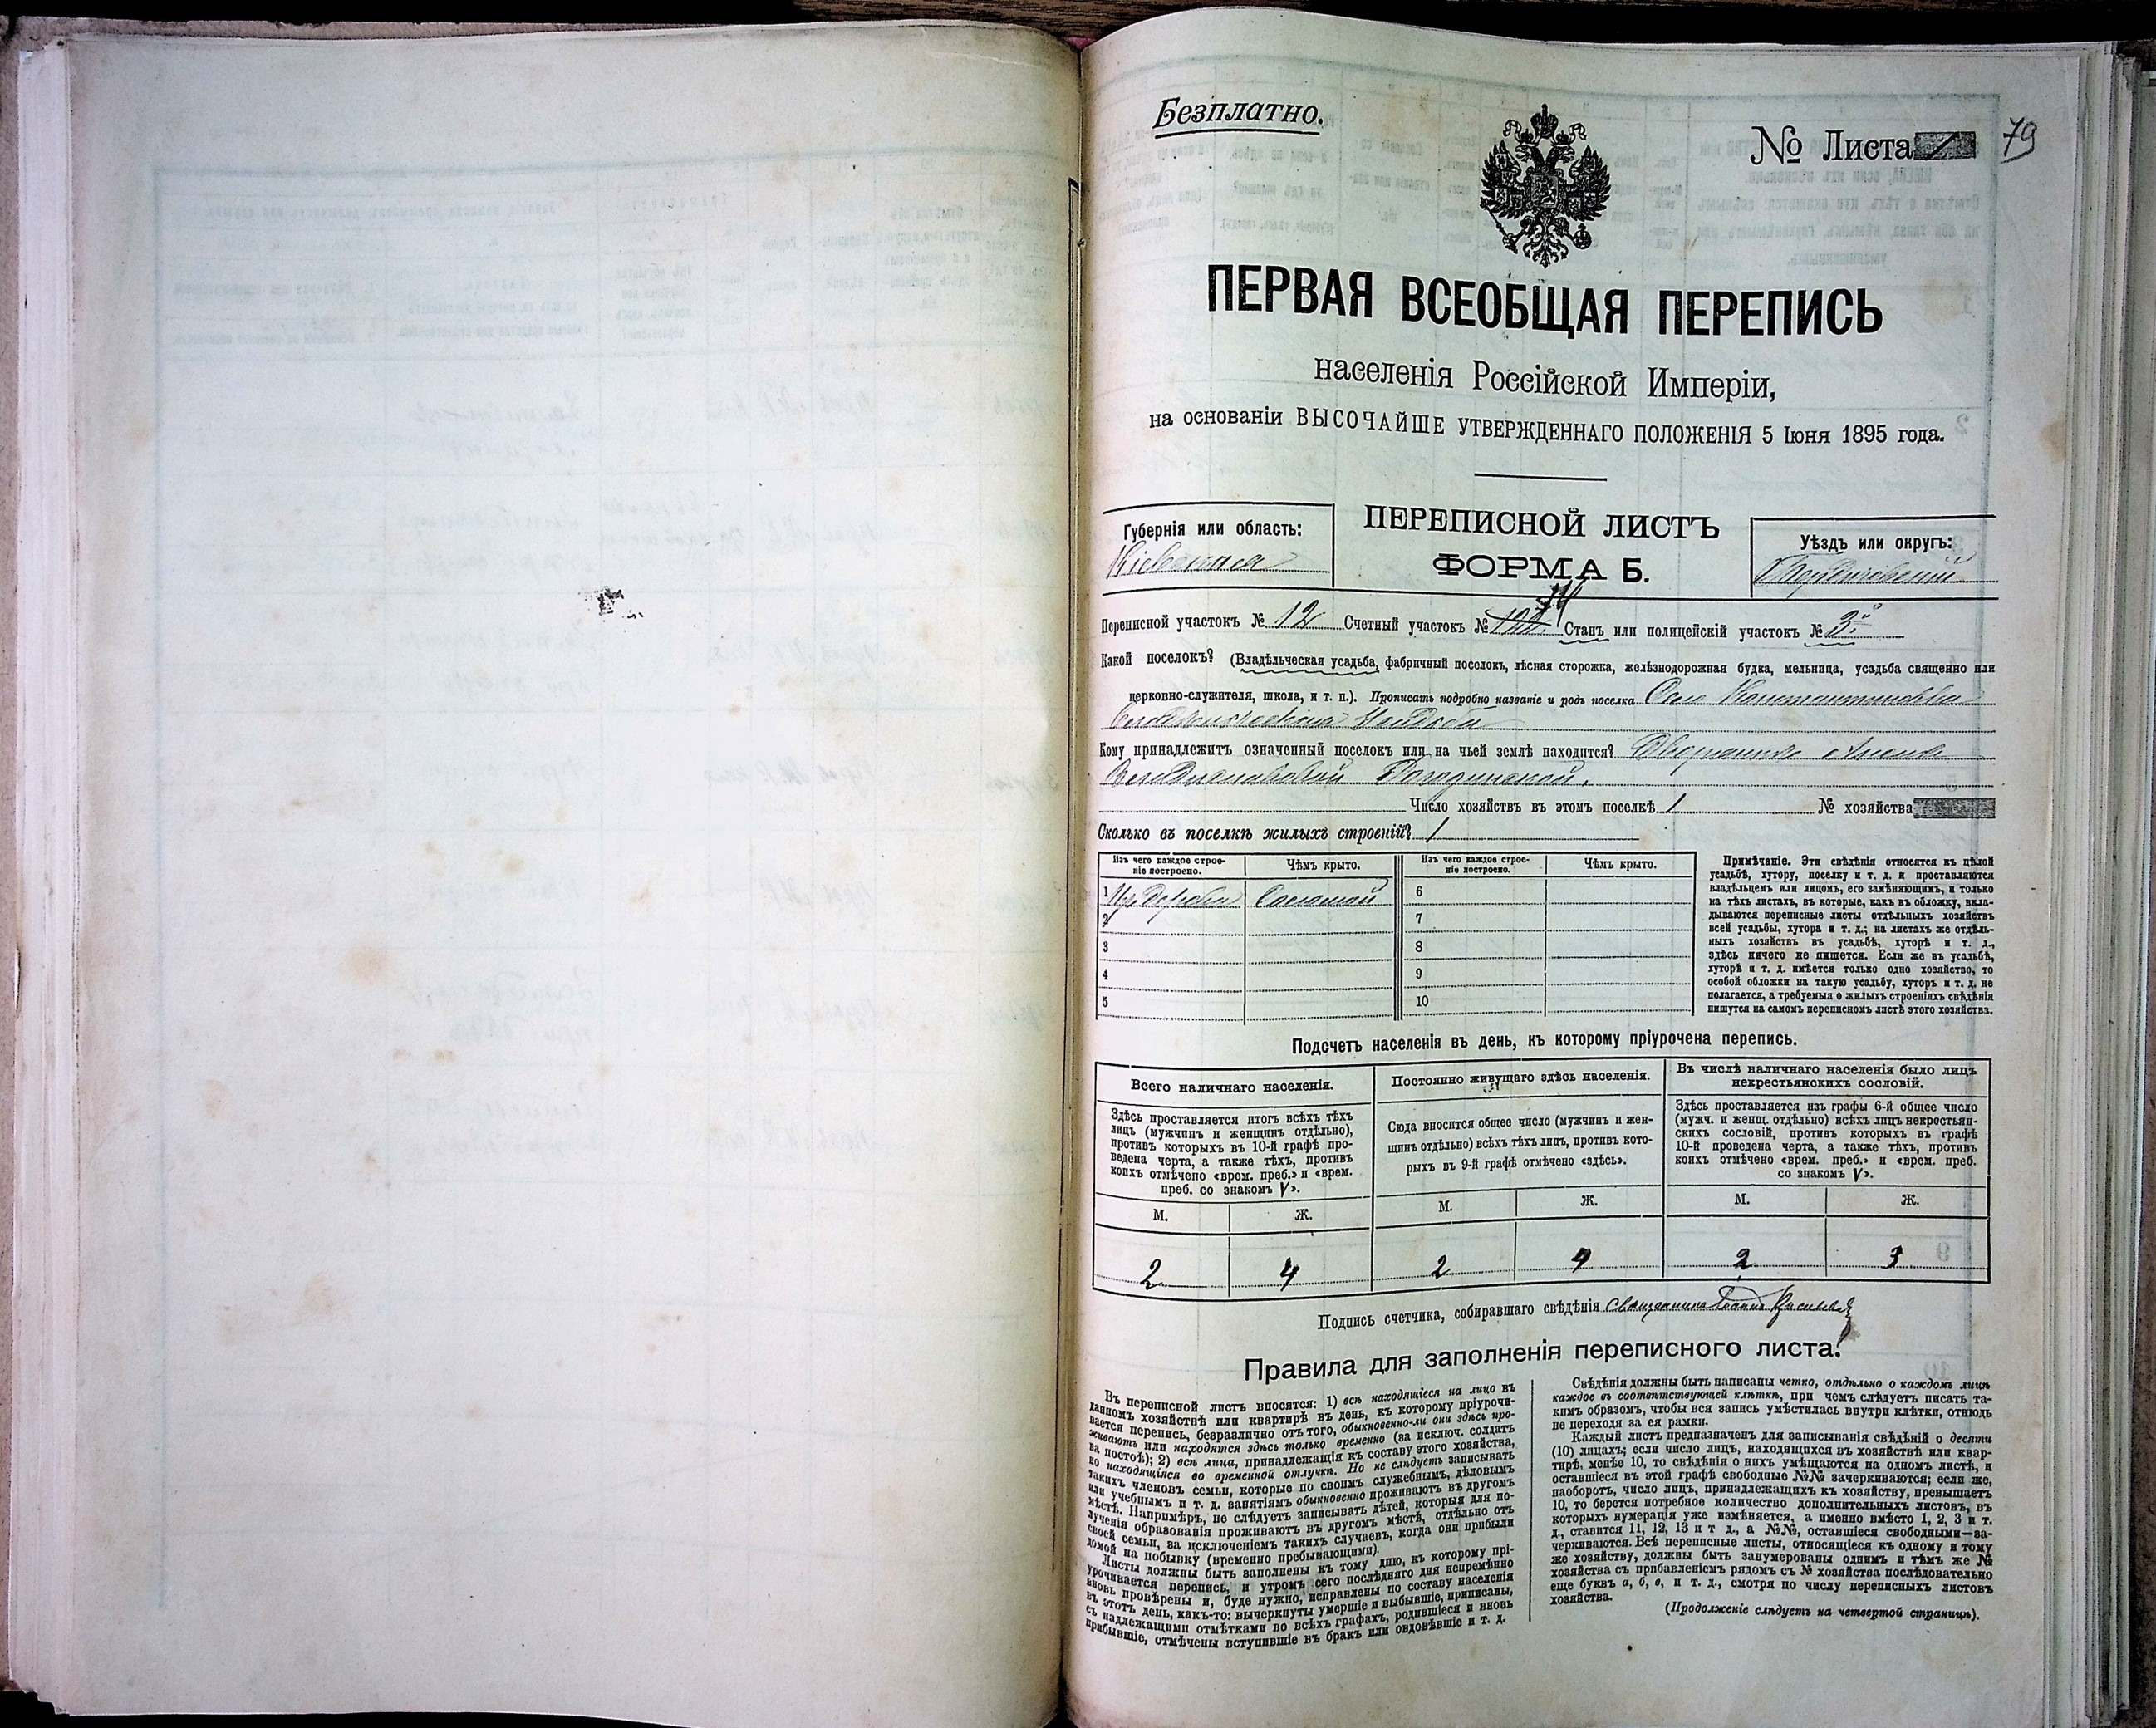 Безплатно.
№ Листа 1
79
ПЕРВАЯ ВСЕОБЩАЯ ПЕРЕПИСЬ
населенія Россійской Имперіи,
на основаніи ВЫСОЧАЙШЕ УТВЕРЖДЕННАГО ПОЛОЖЕНІЯ 5 Іюня 1895 года.
Губернія или область:
Кіевская
ПЕРЕПИСНОЙ ЛИСТЪ
ФОРМА Б.
Уѣздъ или округъ:
Бердичевскій
Переписной участокъ № 12 Счетный участокъ № 14 Станъ или полицейскій участокъ № 3й
Какой поселокъ? (Владѣльческая усадьба, фабричный поселокъ, лѣсная сторожка, желѣзнодорожная будка, мельница, усадьба священно или
церковно-служителя, школа, и т. п.). Прописать подробно названіе и родъ поселка Село Константиновка
Кому принадлежитъ означенный поселокъ или на чьей землѣ находится? Дворянина
Число хозяйствъ въ этомъ поселкѣ 1 № хозяйства
Сколько въ поселкѣ жилыхъ строеній? 1
Изъ чего каждое строе-
ніе построено.
Чѣмъ крыто.
Изъ чего каждое строе-
ніе построено.
Чѣмъ крыто.
1 Изъ дерева Соломой 6
2 7
3 8
4 9
5 10
Примѣчаніе. Эти свѣдѣнія относятся къ цѣлой
усадьбѣ, хутору, поселку и т. д. и проставляются
владѣльцемъ или лицомъ, его замѣняющимъ, и только
на тѣхъ листахъ, въ которые, какъ въ обложку, вкла-
дываются переписные листы отдѣльныхъ хозяйствъ
всей усадьбы, хутора и т. д.; на листахъ же отдѣль-
ныхъ хозяйствъ въ усадьбѣ, хуторѣ и т. д.,
здѣсь ничего не пишется. Если же въ усадьбѣ,
хуторѣ и т. д. имѣется только одно хозяйство, то
особой обложки на такую усадьбу, хуторъ и т. д. не
полагается, а требуемыя о жилыхъ строеніяхъ свѣдѣнія
пишутся на самомъ переписномъ листѣ этого хозяйства.
Подсчетъ населенія въ день, къ которому пріурочена перепись.
Всего наличнаго населенія.
Здѣсь проставляется итогъ всѣхъ тѣхъ
лицъ (мужчинъ и женщинъ отдѣльно),
противъ которыхъ въ 10-й графѣ про-
ведена черта, а также тѣхъ, противъ
коихъ отмѣчено «врем. преб.» и «врем.
преб. со знакомъ V».
М. Ж.
2 4
Постоянно живущаго здѣсь населенія.
Сюда вносится общее число (мужчинъ и жен-
щинъ отдѣльно) всѣхъ тѣхъ лицъ, противъ кото-
рыхъ въ 9-й графѣ отмѣчено «здѣсь».
М. Ж.
2 4
Въ числѣ наличнаго населенія было лицъ
некрестьянскихъ сословій.
Здѣсь проставляется изъ графы 6-й общее число
(мужч. и женщ. отдѣльно) всѣхъ лицъ некрестьян-
скихъ сословій, противъ которыхъ въ графѣ
10-й проведена черта, а также тѣхъ, противъ
коихъ отмѣчено «врем. преб.» и «врем. преб.
со знакомъ V».
М. Ж.
2 3
Подпись счетчика, собиравшаго свѣдѣнія
Правила для заполненія переписного листа.
Въ переписной листъ вносятся: 1) всѣ находящіеся на лицо въ
данномъ хозяйствѣ или квартирѣ въ день, къ которому пріурочи-
вается перепись, безразлично отъ того, обыкновенно-ли они здѣсь про-
живаютъ или находятся здѣсь только временно (за исключ. солдатъ
на постоѣ); 2) всѣ лица, принадлежащія къ составу этого хозяйства,
но находящіяся во временной отлучкѣ. Но не слѣдуетъ записывать
такихъ членовъ семьи, которые по своимъ служебнымъ, дѣловымъ
или учебнымъ и т. д. занятіямъ обыкновенно проживаютъ въ другомъ
мѣстѣ. Напримѣръ, не слѣдуетъ записывать дѣтей, которыя для по-
лученія образованія проживаютъ въ другомъ мѣстѣ, отдѣльно отъ
своей семьи, за исключеніемъ такихъ случаевъ, когда они прибыли
домой на побывку (временно пребывающими).
Листы должны быть заполнены къ тому дню, къ которому прі-
урочивается перепись, и утромъ сего послѣдняго дня непремѣнно
вновь провѣрены и, буде нужно, исправлены по составу населенія
въ этотъ день, какъ-то: вычеркнуты умершіе и выбывшіе, приписаны,
съ надлежащими отмѣтками во всѣхъ графахъ, родившіеся и вновь
прибывшіе, отмѣчены вступившіе въ бракъ или овдовѣвшіе и т. д.
Свѣдѣнія должны быть написаны четко, отдѣльно о каждомъ лицѣ
каждое въ соотвѣтствующей клѣткѣ, при чемъ слѣдуетъ писать та-
кимъ образомъ, чтобы вся запись умѣстилась внутри клѣтки, отнюдь
не переходя за ея рамки.
Каждый листъ предназначенъ для записыванія свѣдѣній о десяти
(10) лицахъ; если число лицъ, находящихся въ хозяйствѣ или квар-
тирѣ, менѣе 10, то свѣдѣнія о нихъ умѣщаются на одномъ листѣ, и
оставшіеся въ этой графѣ свободные №№ зачеркиваются; если же,
наоборотъ, число лицъ, принадлежащихъ къ хозяйству, превышаетъ
10, то берется потребное количество дополнительныхъ листовъ, въ
которыхъ нумерація уже измѣняется, а именно вмѣсто 1, 2, 3 и т.
д., ставится 11, 12, 13 и т д., а №№, оставшіеся свободными—за-
черкиваются. Всѣ переписные листы, относящіеся къ одному и тому
же хозяйству, должны быть занумерованы однимъ и тѣмъ же №
хозяйства съ прибавленіемъ рядомъ съ № хозяйства послѣдовательно
еще буквъ а, б, в, и т. д., смотря по числу переписныхъ листовъ
хозяйства.
(Продолженіе слѣдуетъ на четвертой страницѣ).